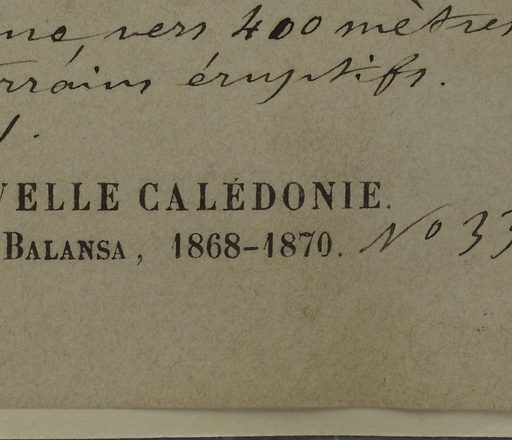 vers 400 mètres
terrains éruptifs.
VELLE CALÉDONIE.
Balansa, 1868-1870. No 33